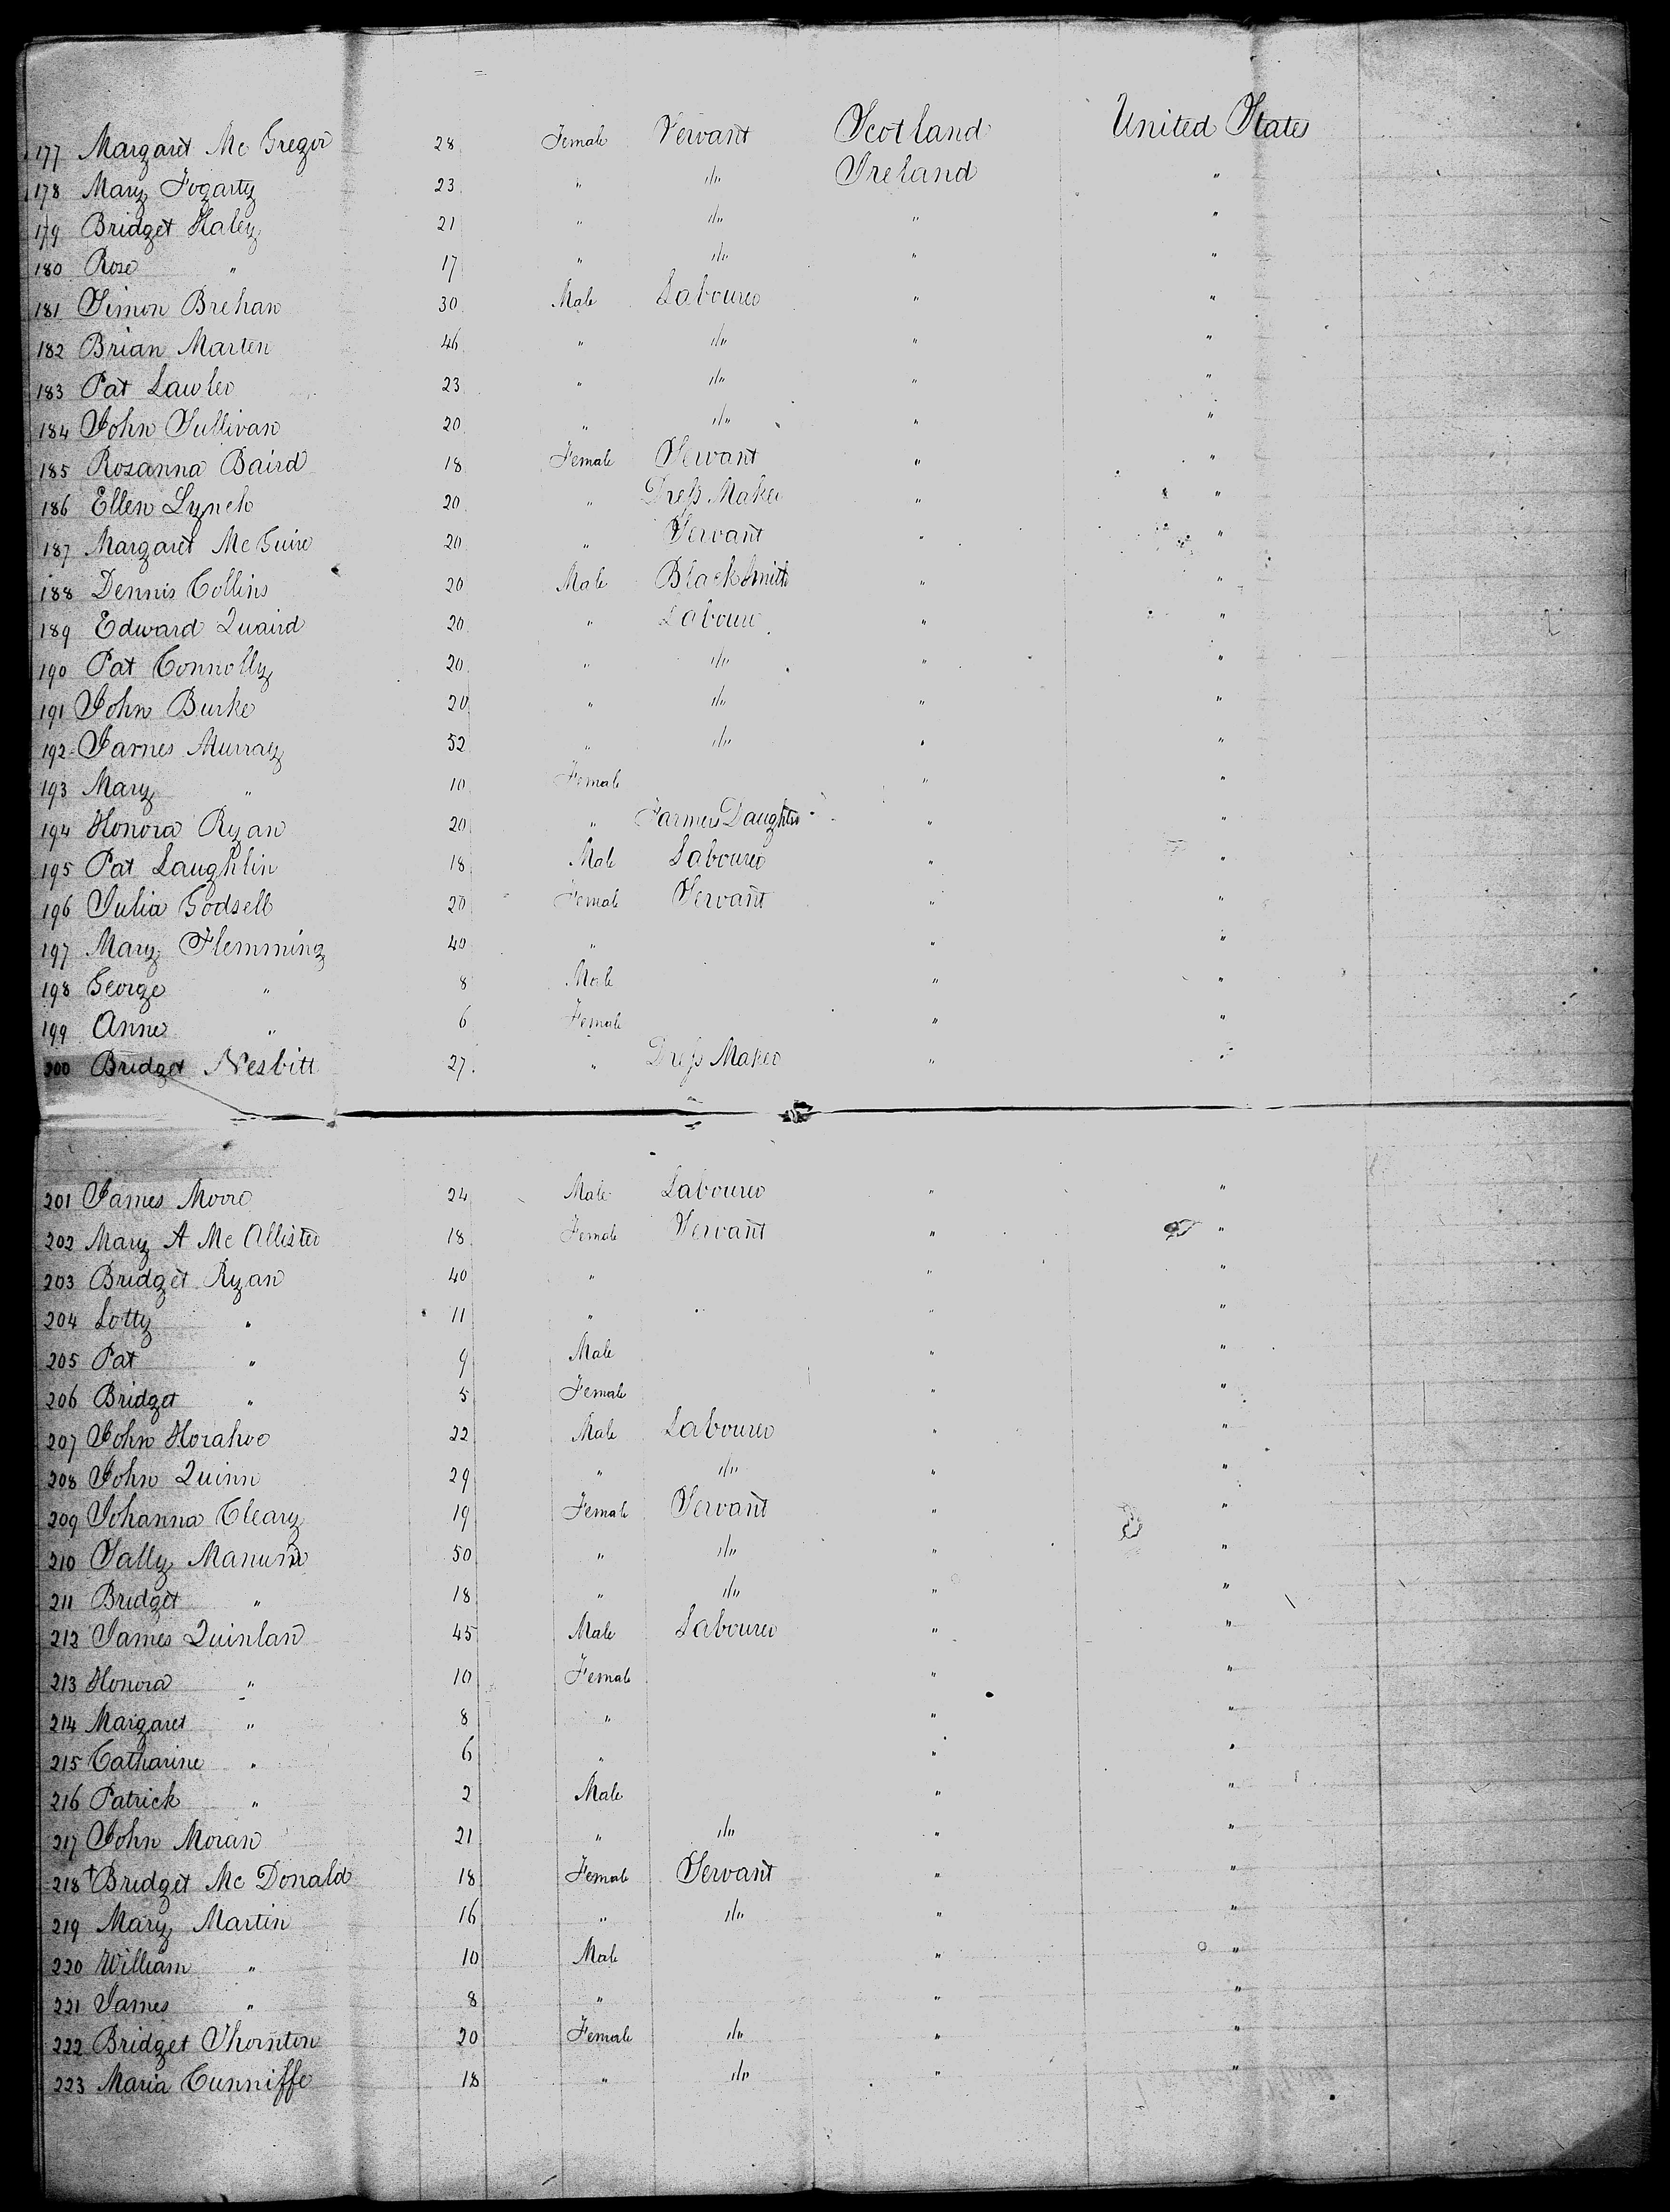 177 Margaret Mc Gregor 28 Female Servant Scotland United States
178 Mary Fogarty 23 " do Ireland "
179 Bridget Haley 21 " do " "
180 Rose " 17 " do " "
181 Simon Brehan 30 Male Labourer " "
182 Brian Marten 46 " do " "
183 Pat Lawler 23 " do " "
184 John Sullivan 20 " do " "
185 Rosanna Baird 18 Female Servant " "
186 Ellen Lynch 20 " Dress Maker " "
187 Margaret McGuire 20 " Servant " "
188 Dennis Collins 20 Male BlackSmith " "
189 Edward Quaird 20 " Labourer " "
190 Pat Connolly 20 " do " "
191 John Burke 20 " do " "
192 James Murray 52 " do " "
193 Mary " 10 Female " "
194 Honora Ryan 20 " Farmers Daughter " "
195 Pat Laughlin 18 Male Labourer " "
196 Julia Godsell 20 Female Servant " "
197 Mary Flemming 40 " " "
198 George " 8 Male " "
199 Anne " 6 Female " "
200 Bridget Nesbitt 27 " Dress Maker " "
201 James Moore 24 Male Labourer " "
202 Mary A Mc Allister 18 Female Servant " "
203 Bridget Ryan 40 " " "
204 Lotty " 11 " " "
205 Pat " 9 Male " "
206 Bridget " 5 Female " "
207 John Horahoe 22 Male Labourer " "
208 John Quinn 29 " do " "
209 Johanna Cleary 19 Female Servant " "
210 Sally 50 " do " "
211 Bridget " 18 " do " "
212 James Quinlan 45 Male Labourer " "
213 Honora " 10 Female " "
214 Margaret " 8 " " "
215 Catharine " 6 " " "
216 Patrick " 2 Male " "
217 John Moran 21 " do " "
218 + Bridget Mc Donald 18 Female Servant " "
219 Mary Martin 16 " do " "
220 William " 10 Male " "
221 James " 8 " " "
222 Bridget Thornton 20 Female do " "
223 Maria Cunniffe 18 " do " "